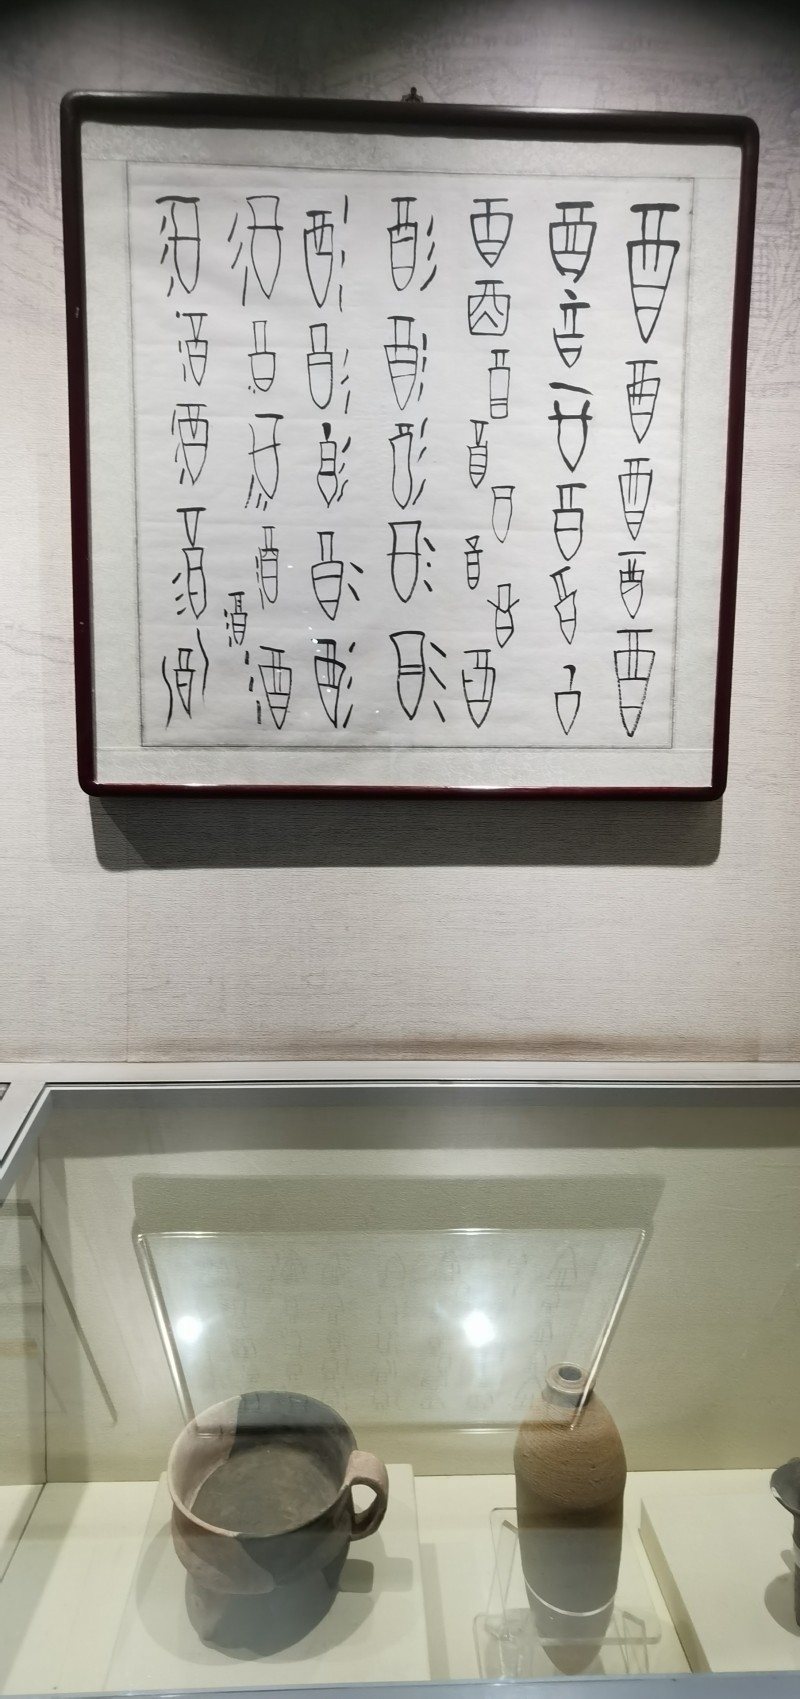 酉酉酉酉酉
酉酉酉酉酉酉
酉酉酉酉酉酉酉酉
酒酒酒酒酒
酒酒酒酒酒
酒酒酒酒酒酒
酒酒酒酒酒